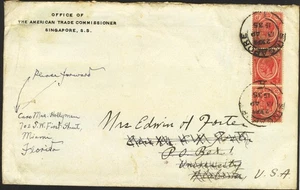 OFFICE OF
THE AMERICAN TRADE COMMISSIONER
SINGAPORE, S.S.
Please forward
Care Mrs. Hollyman
702 S.W. First Street,
Miami
Florida
Mrs Edwin of Foster
P.O. Box 1
University
Alabama
U.S.A